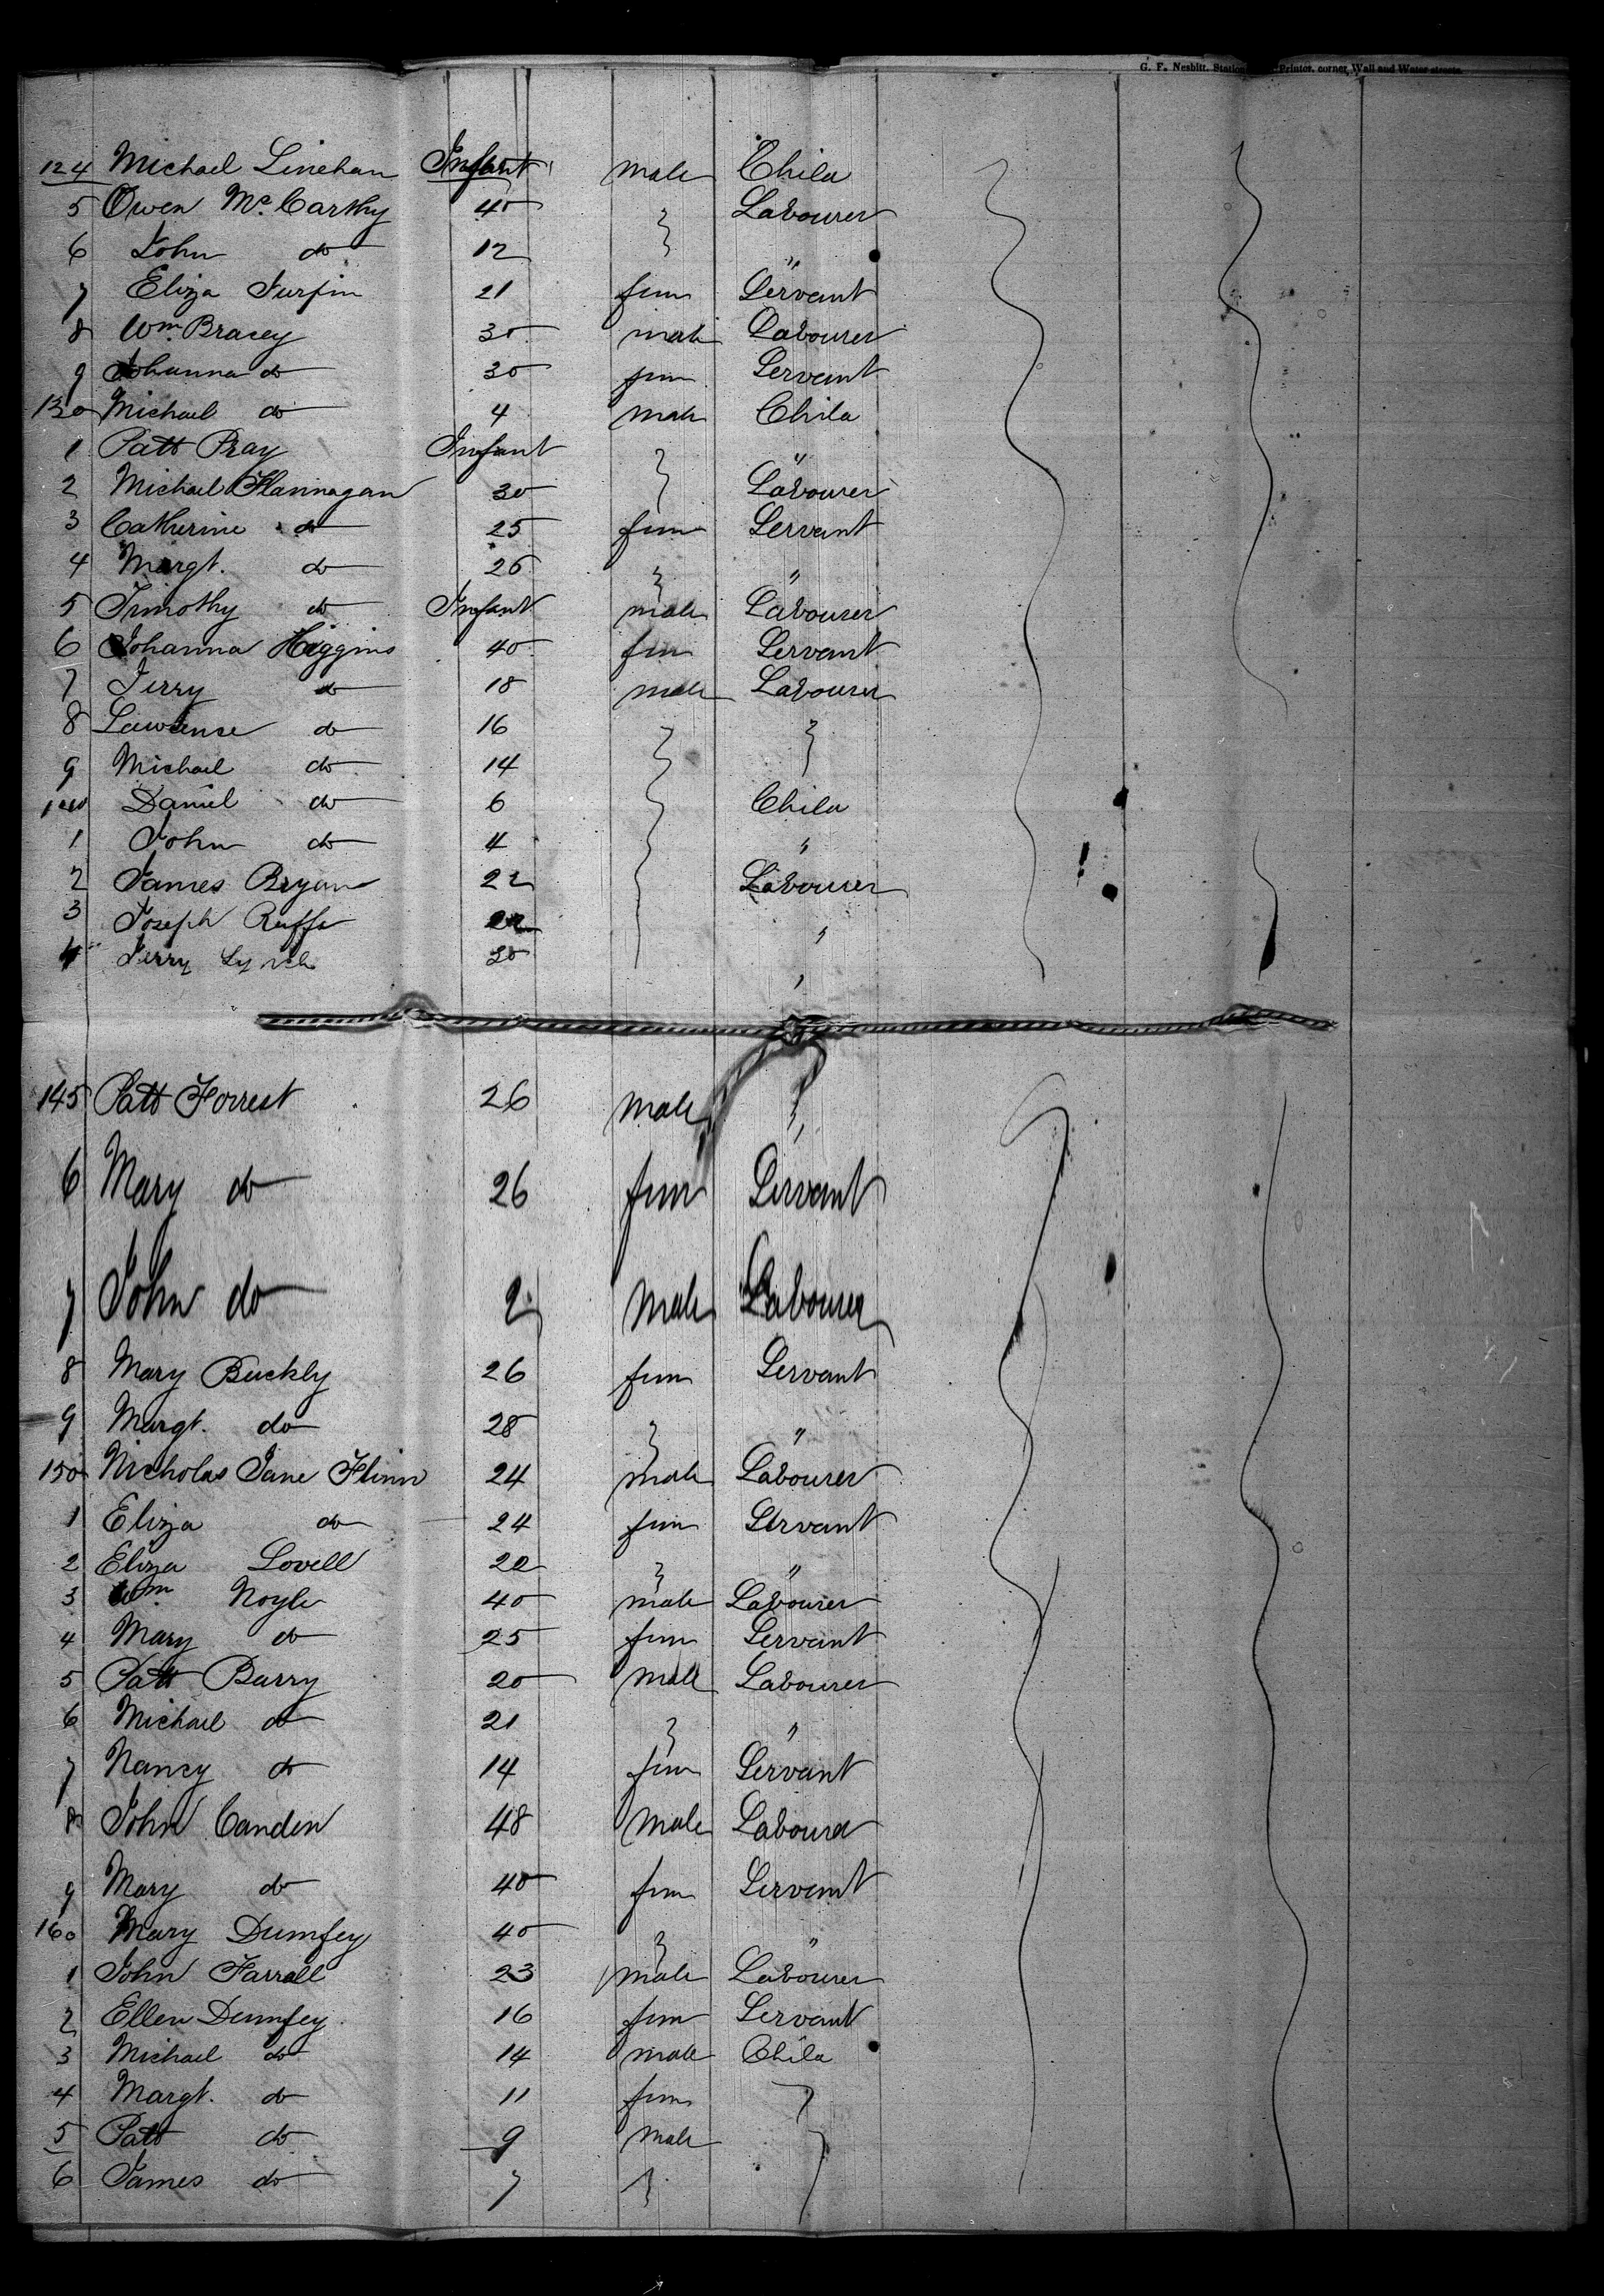 G. F. Nesbitt, Station Printer, corner Wall and Water streets.
124 Michael Linehan Infant male Child
5 Owen Mc. Carthy 40 " Labourer
6 John do 12 " "
7 Eliza Turpin 21 fem Servant
8 Wm. Bracey 30 male Labourer
9 Johanna do 30 fem Servant
130 Michael do 4 male Child
1 Patt Bray Infant " "
2 Michael Flannagan 30 " Labourer
3 Catherine do 25 fem Servant
4 Margt. do 26 " "
5 Timothy do Infant male Labourer
6 Johanna Higgins 40 fem Servant
7 Jerry do 18 male Labourer
8 Lawrence do 16 " "
9 Michael do 14 " "
140 Daniel do 6 " Child
1 John do 4 " "
2 James Bryan 22 " Labourer
3 Joseph 22 " "
4 Jerry Lynch 30 " "
145 Patt Forrest 26 male "
6 Mary do 26 fem Servant
7 John do 2 male Labourer
8 Mary Buckly 26 fem Servant
9 Margt. do 28 " "
150 Nicholas Jane Flinn 24 male Labourer
1 Eliza do 24 fem Servant
2 Eliza Lovell 22 " "
3 Wm Noyle 40 male Labourer
4 Mary do 25 fem Servant
5 Patt Barry 20 male Labourer
6 Michael do 21 " "
7 Nancy do 14 fem Servant
8 John Canden 48 male Labourer
9 Mary do 40 fem Servant
160 Mary Dumfey 40 " "
1 John Farrell 23 male Labourer
2 Ellen Dumfey 16 fem Servant
3 Michael do 14 male Child
4 Margt. do 11 fem "
5 Patt do 9 male "
6 James do 7 " "